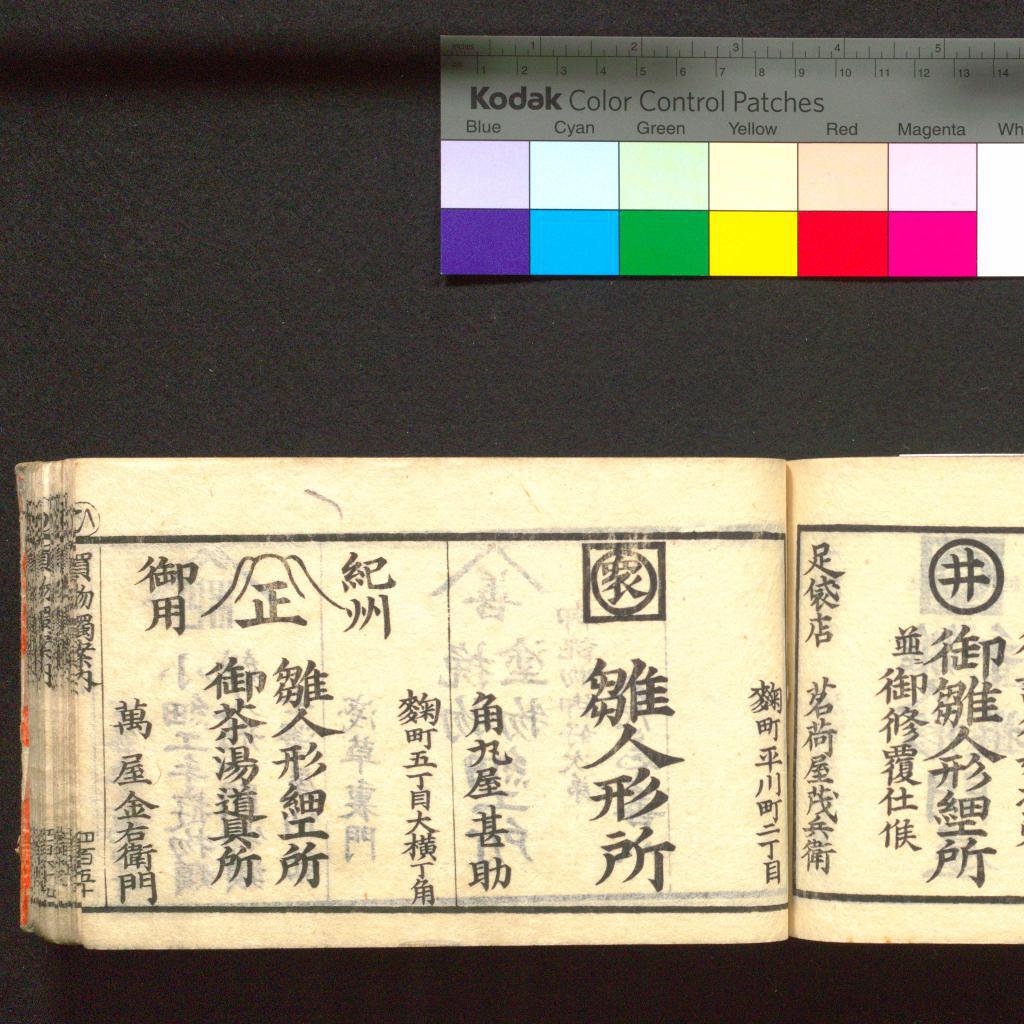 inches 1 2 3 4 5
cm 1 2 3 4 5 6 7 8 9 10 11 12 13 14
Kodak Color Control Patches
Blue Cyan Green Yellow Red Magenta Wh
井
御雛人形細工所
並御修覆仕候
足袋店
茗荷屋茂兵衛
麹町平川町二丁目
雛人形所
角丸屋甚助
麹町五丁目大横丁角
紀州
正
御用
雛人形細工所
御茶湯道具所
萬屋金右衛門
買物獨案内
四百五十